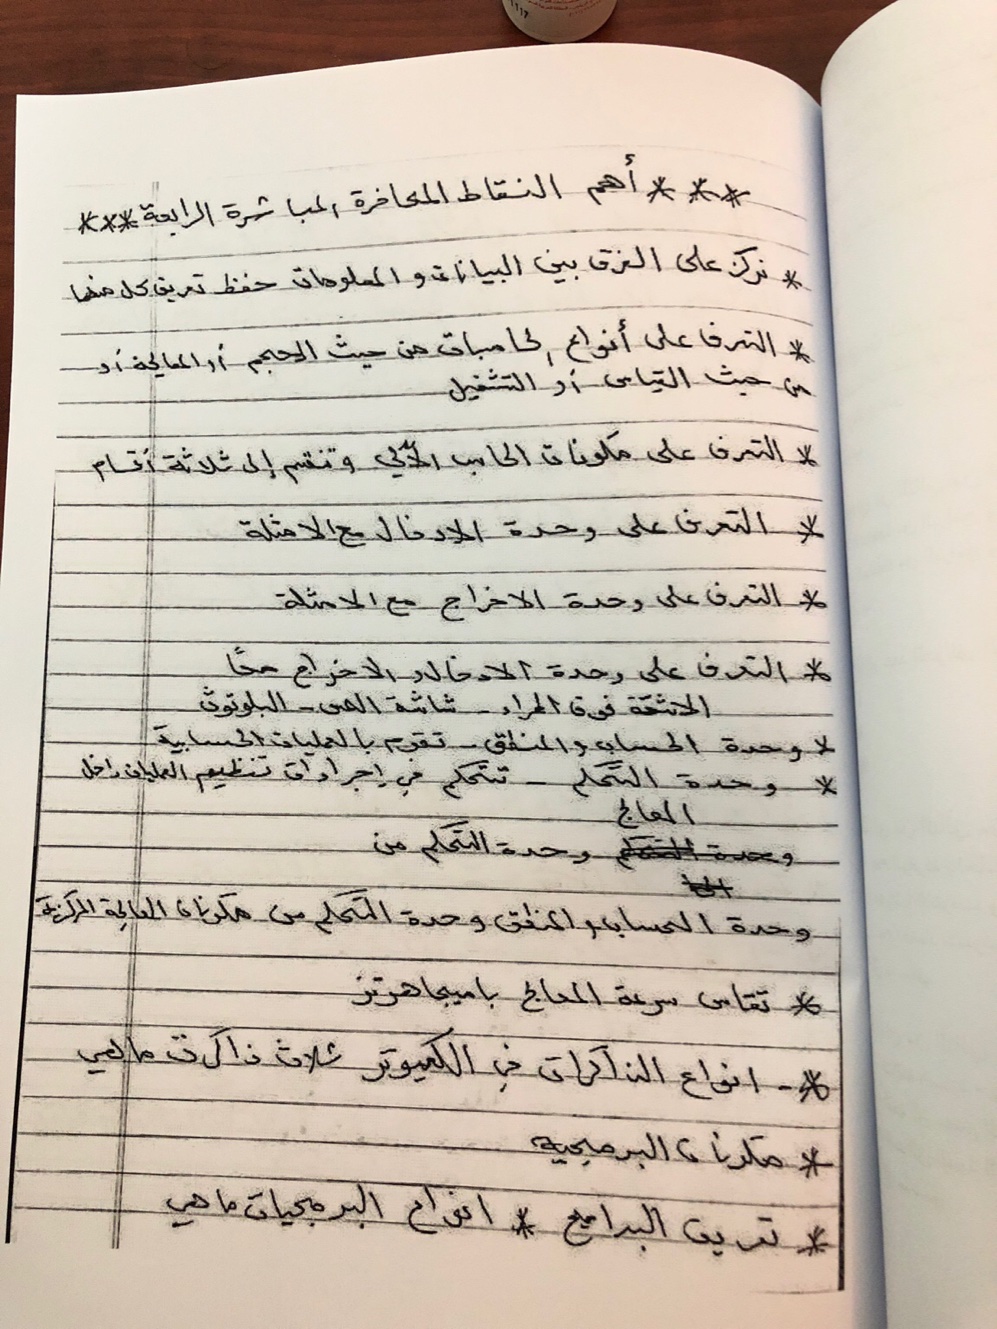 *** أهم النقاط المحاضرة المباشرة الرابعة ***
* نركز على الفرق بين البيانات والمعلومات حفظ تعريف كل منهما
* التعرف على أنواع الحاسبات من حيث الحجم أو المعالجة أو
من حيث القياس أو التشغيل
* التعرف على مكونات الحاسب الآلي وتنقسم إلى ثلاثة أقسام
* التعرف على وحدة الادخال مع الامثلة
* التعرف على وحدة الاخراج مع الامثلة
* التعرف على وحدة الادخال والاخراج معًا
فوق الحمراء - شاشة اللمس - البلوتوث
* وحدة الحساب والمنطق - تقوم بالعمليات الحسابية
* وحدة التحكم - تتحكم في إجراءات تنظيم العمليات داخل
المعالج
وحدة التحكم وحدة التحكم من
وحدة الحساب والمنطق وحدة التحكم من مكونات المعالجة المركزية
* تقاس سرعة المعالج باميجاهرتز
* - انواع الذاكرات في الكمبيوتر ثلاث ذاكرت ماهي
* مكونات البرمجية
* تعريف البرامج * انواع البرمجيات ماهي